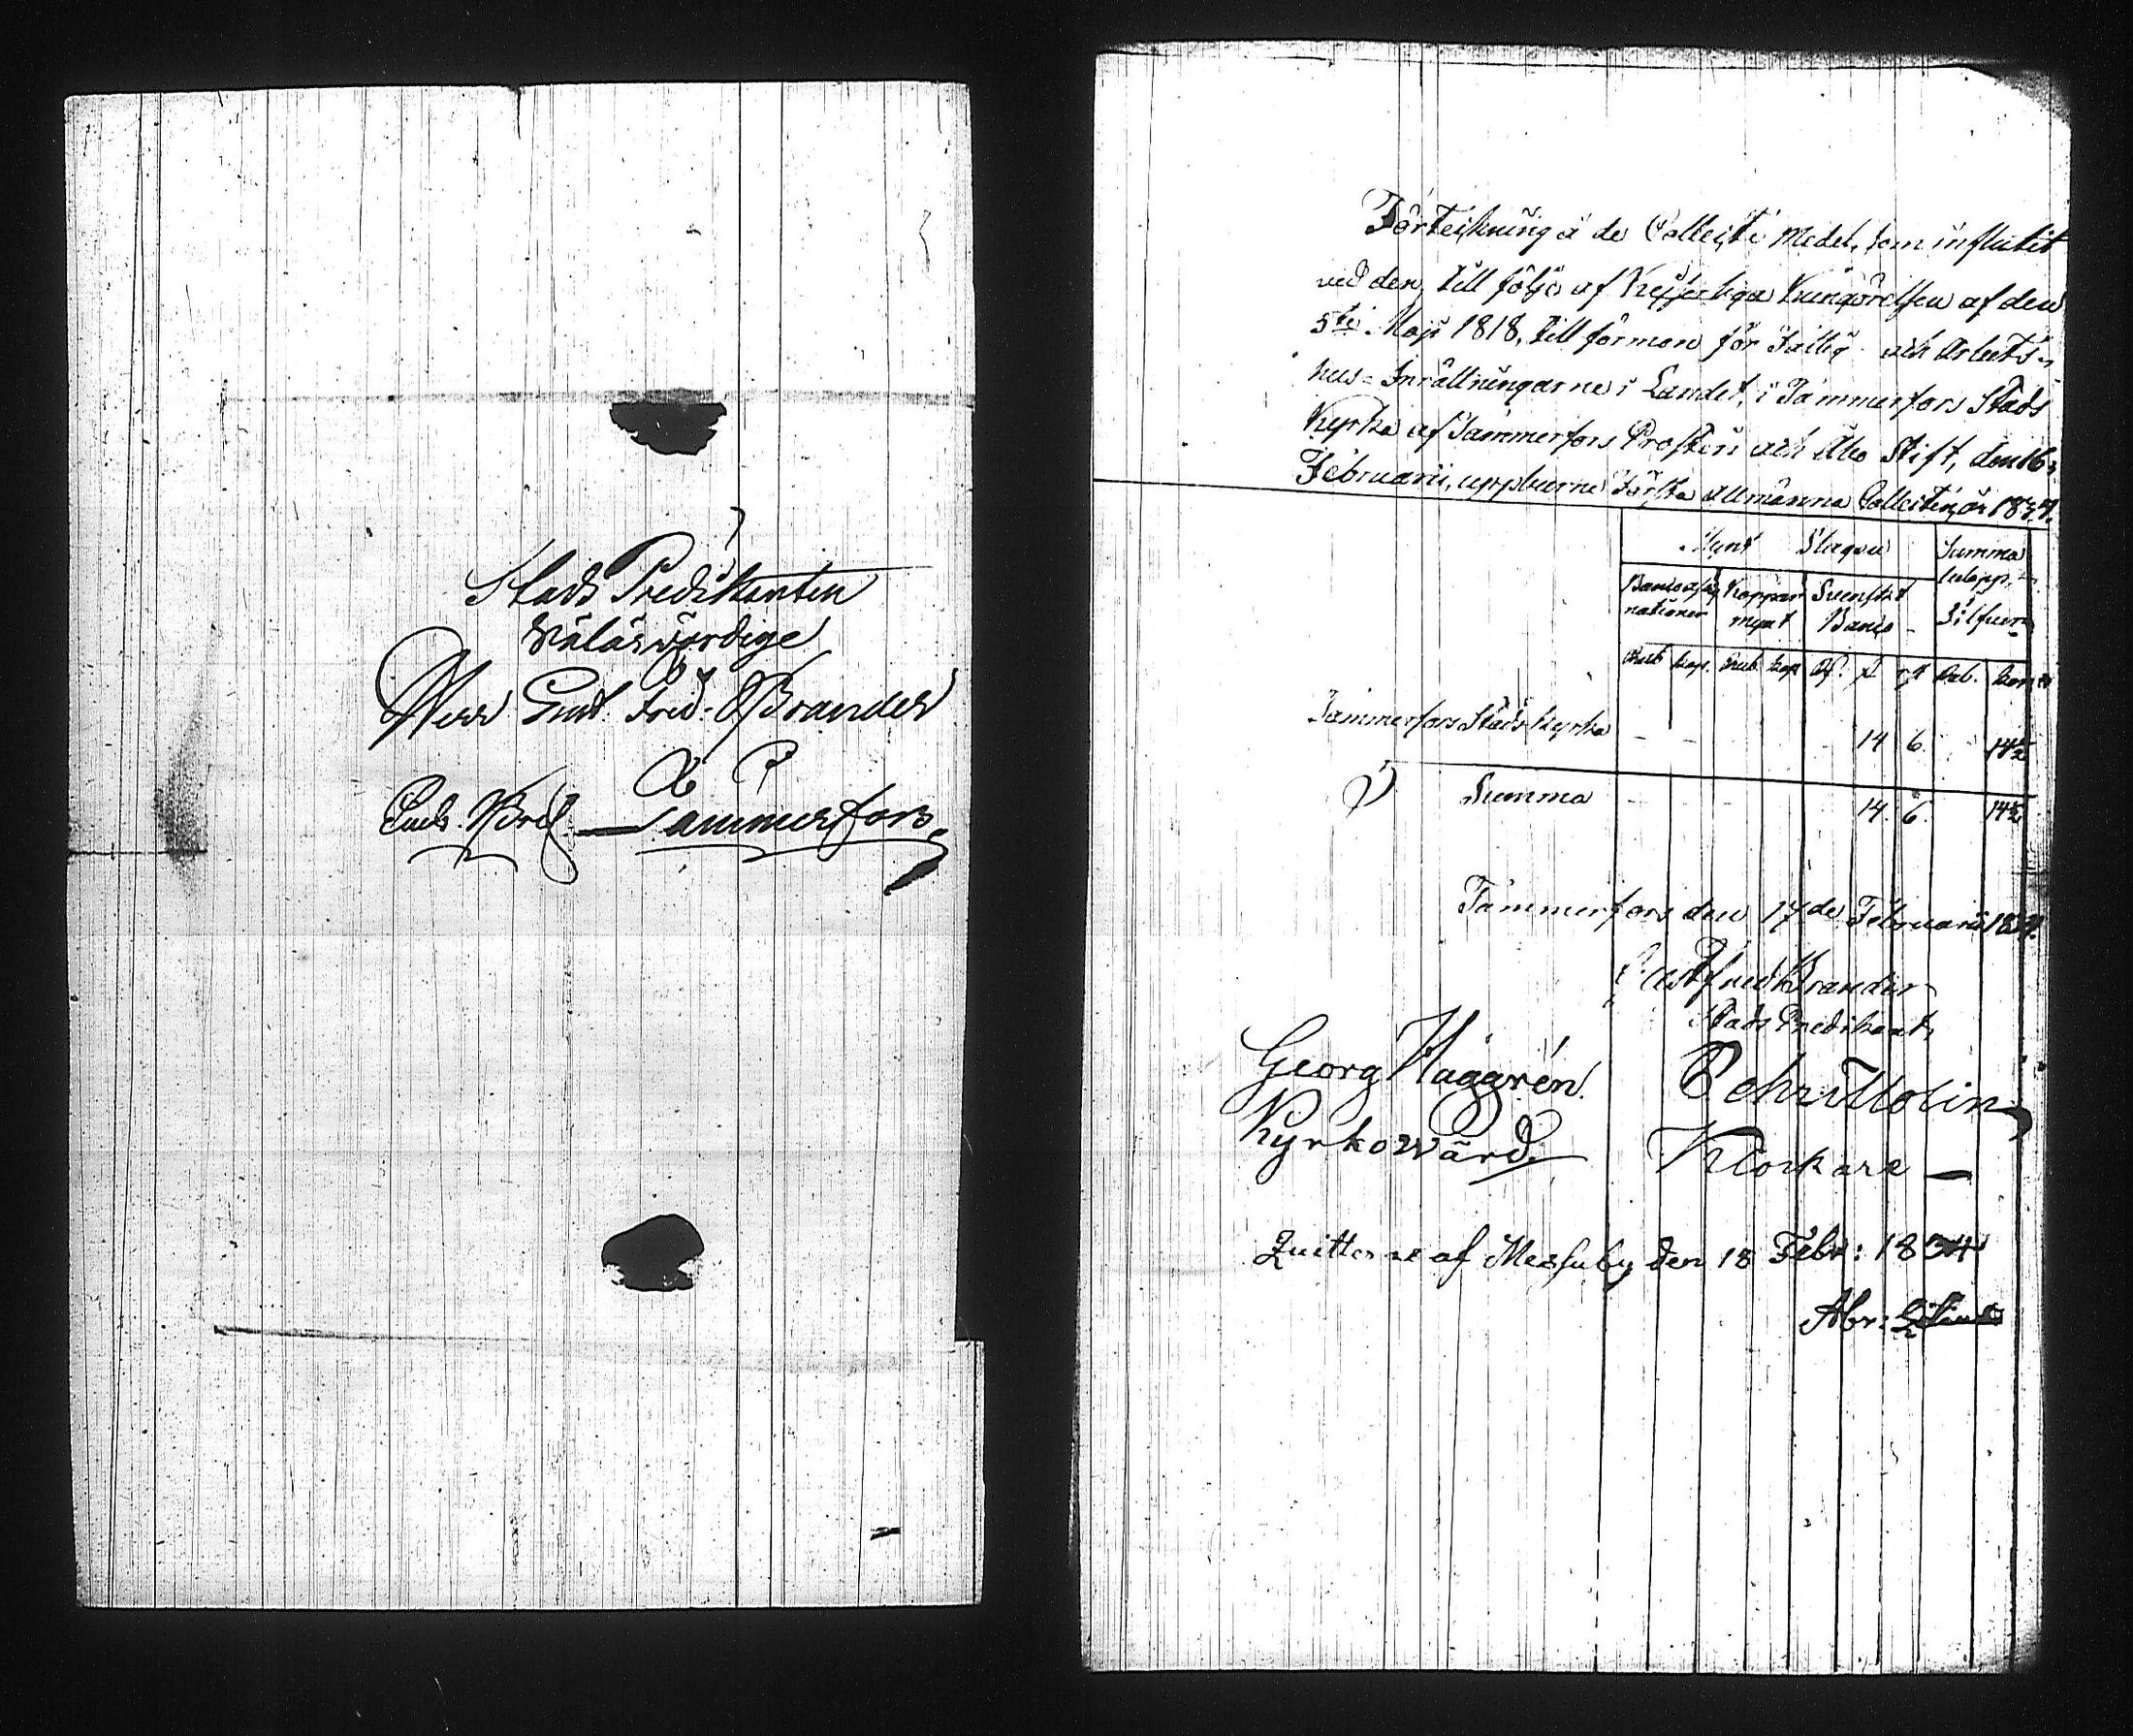 Stads Predikanten
Wälärwördige
Herr Gust. Fred. Brander
Tammerfors
Förteikning å de Collect Medel, som influtit
wid den, till följe af Kejserliga Kungörelsen af den
5te Maji 1818, till förmon för Fattig- och Arbets-
hus-Inrättningarne i Landet, i Tammerfors Stads
Kyrka af Tammerfors Prosteri och Åbo Stift, den 16
Februarii, uppburne Första allmänna Collecten, år 1834.
Mynt Slagen Summa
belopp
Banco assig
nationer Koppar
mynt Svenskt
Banco Silfver
Rub. kop. Rub. kop. Rub. kop.
Tammerfors Stads Kyrka - - 14 6. 14½
Summa - - 14. 6. 14½
Tammerfors den 17de Februarii 1834.
Gust Fred Brander
Stads Predikant
Georg Häggrén Pehr Molin
Kyrkowärd Klockare
Quitteras af Messuby den 18 Febr: 1834
Abr: